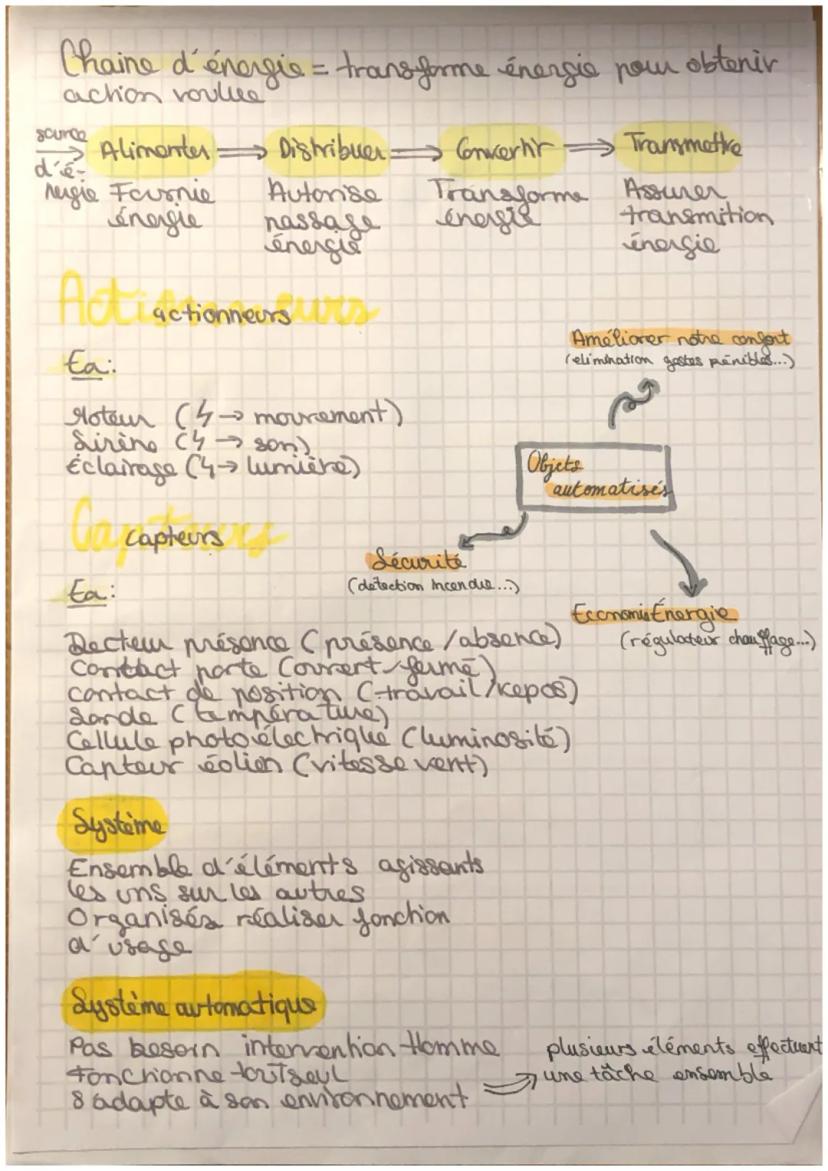 Chaine d'énergie = transforme énergie pour obtenir
action voulue
source
d'é-
nergie
Alimenter ⟹ Distribuer ⟹ Convertir ⟹ Transmettre
Fournie
énergie
Autorise
passage
énergie
Transforme
énergie
Assurer
transmition
énergie
Actionneurs
actionneurs
Ex:
Moteur (↯→ mouvement)
Sirène (↯→ son)
Éclairage (↯→ lumière)
Améliorer notre confort
(elimination gestes pénibles...)
Objets
automatisés
Sécurité
(détection incendie...)
Economis Énergie
(régulateur chauffage...)
Capteurs
capteurs
Ex:
Decteur présence (présence/absence)
Contact porte (ouvert/fermé)
contact de position (travail/repos)
Sonde (température)
Cellule photoélectrique (luminosité)
Capteur éolien (vitesse vent)
Système
Ensemble d'éléments agissants
les uns sur les autres
Organisés réaliser fonction
d'usage
Système automatique
Pas besoin intervention Homme
Fonctionne toutseul
s'adapte à son environnement
plusieurs éléments effectuent
une tâche ensemble